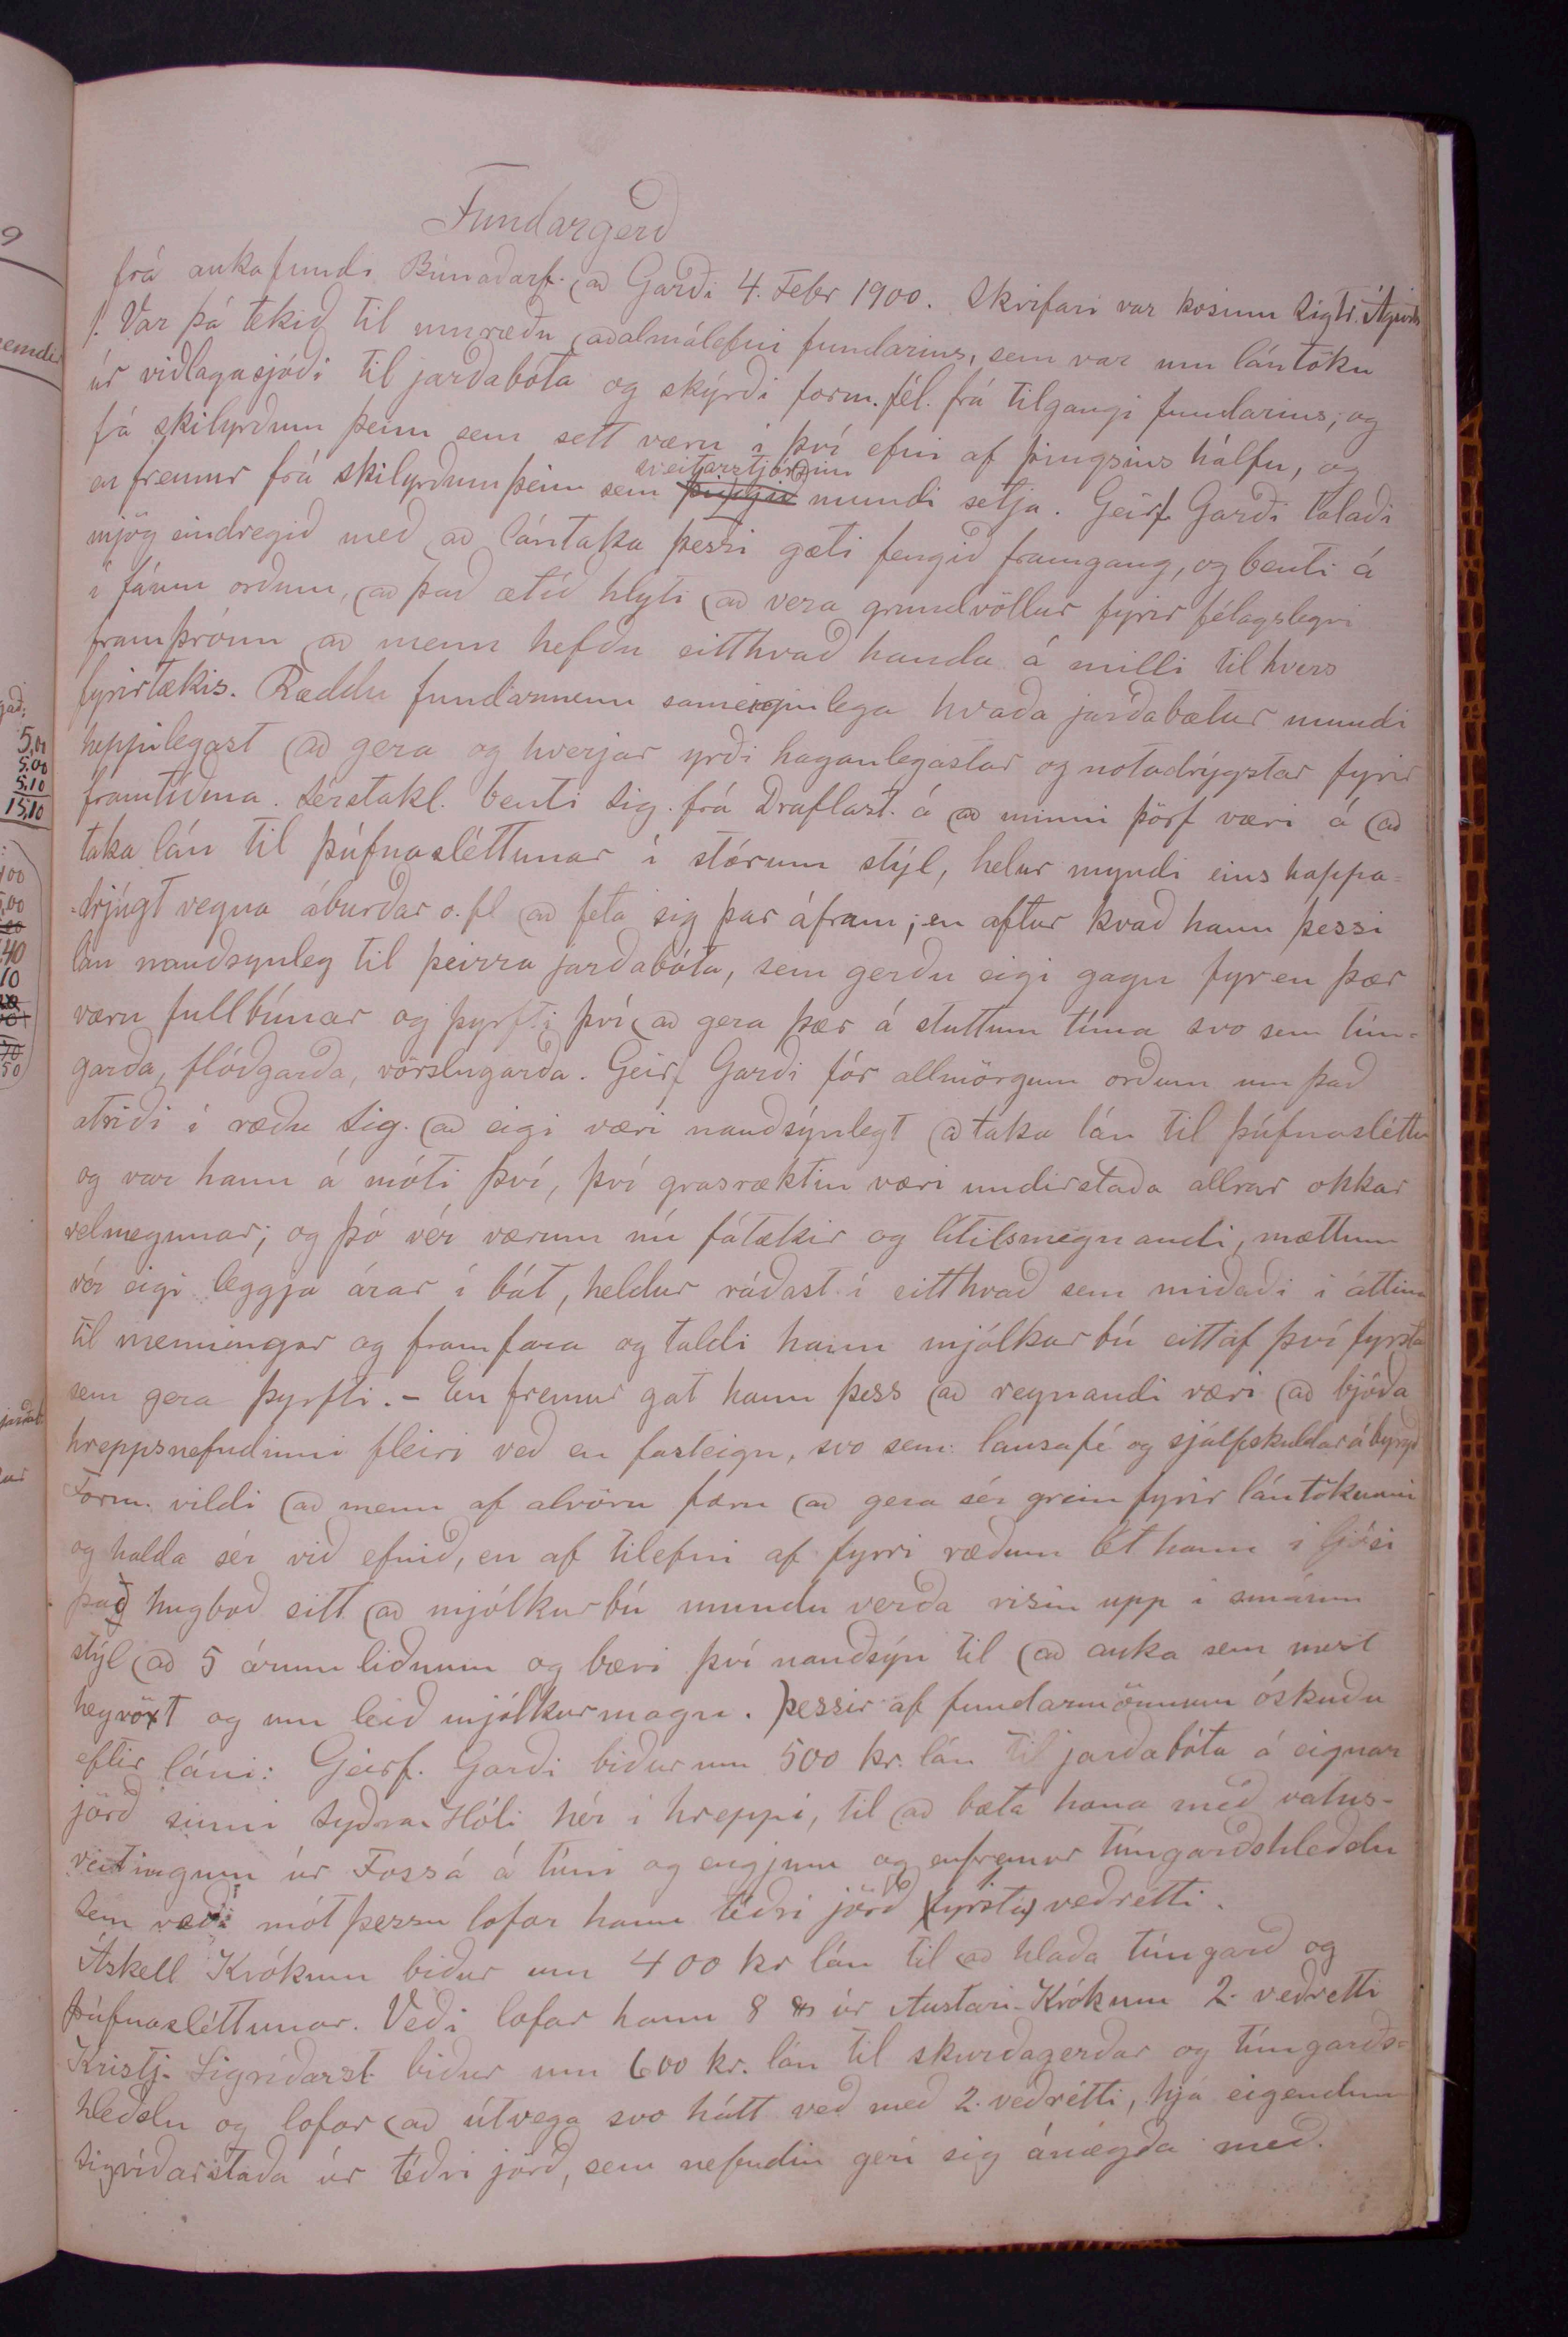 Fundargerð
frá aukafundi Búnaðarf. að Garði 4. Febr 1900. Skrifari var kosinn Sigtr. Ágústs
1. Var þá tekið til umræðu aðalmálefni fundarins, sem var um lántöku
úr viðlagasjóði til jarðabóta og skýrði form. fél. frá tilgangi fundarins, og
frá skilyrðum þeim sem sett væru í því efni af þingsins hálfu, og
en fremur frá skilyrðum þeim sem sveitarstjórnin mundi setja. Geirf. Garði talaði
mjög eindregið með að lántaka þessi gæti fengið framgang, og benti á
í fáum orðum, að það ætíð hlyti að vera grundvöllur fyrir félagslegri
framþróun að menn hefðu eitthvað handa á milli til hvers
fyrirtækis. Ræddu fundarmenn sameiginlega hvaða jarðabætur mundi
heppilegast að gera og hverjar yrði haganlegastar og notadrýgstar fyrir
framtíðina. Sérstakl. benti Sig. frá Draflast. á að minni þörf væri á að
taka lán til þúfnasléttunar í stórum stýl, helur myndi eins happa=
=drjúgt vegna áburðar o.fl að feta sig þar áfram; en aftur kvað hann þessi
lán nauðsynleg til þeirra jarðabóta, sem gerðu eigi gagn fyr en þær
væru fullbúnar og þyrfti því að gera þær á stuttum tíma svo sem tún=
garða, flóðgarða, vörslugarða. Geirf Garði fór allmörgum orðum um það
atriði í ræðu Sig. að eigi væri nauðsýnlegt að taka lán til þúfnasléttu
og var hann á móti því, því grasræktin væri undirstaða allrar okkar
velmegunar; og þó vér værum nú fátækir og lítilsmegnandi, mættum
vér eigi leggja árar í bát, heldur ráðast í eitthvað sem miðaði í áttina
til menningar og framfara og taldi hann mjólkurbú eitt af því fyrsta
sem gera þyrfti. – En fremur gat hann þess að reynandi væri að bjóða
hreppsnefndinni fleiri veð en fasteign, svo sem: lausafé og sjálfskuldarábyrgð
Form. vildi að menn af alvöru færu að gera sér grein fyrir lántökunni
og halda sér við efnið, en af tilefni af fyrri ræðum lét hann í ljósi
það hugboð sitt að mjólkurbú mundu verða risin upp í smáum
stýl að 5 árum liðnum og bæri því nauðsýn til að auka sem mest
heyvöxt og um leið mjólkurmagn. Þessir af fundarmönnum óskuðu
eftir láni: Geirf. Garði biður um 500 kr. lán til jarðabóta á eignar
jörð sinni Syðra-Hóli hér í hreppi, til að bæta hana með vatns-
veitingum úr Fossá á túni og engjum og enfremur túngarðshleðslu
Sem veði mót þessu lofar hann téðri jörð (fyrsta) veðrétti.
Áskell Krókum biður um 400 kr lán til að hlaða túngarð og
þúfnasléttunar. Veði lofar hann 8 úr Austari-Krókum 2. veðrétti
Kristj. Sigríðarst. biður um 600 kr. lán til skurðagerðar og túngarðs=
hleðslu og lofar að útvega svo hátt veð með 2. veðrétti, hjá eigendum
Sigríðarstaða úr téðri jörð, sem nefndin geri sig ánægða með.